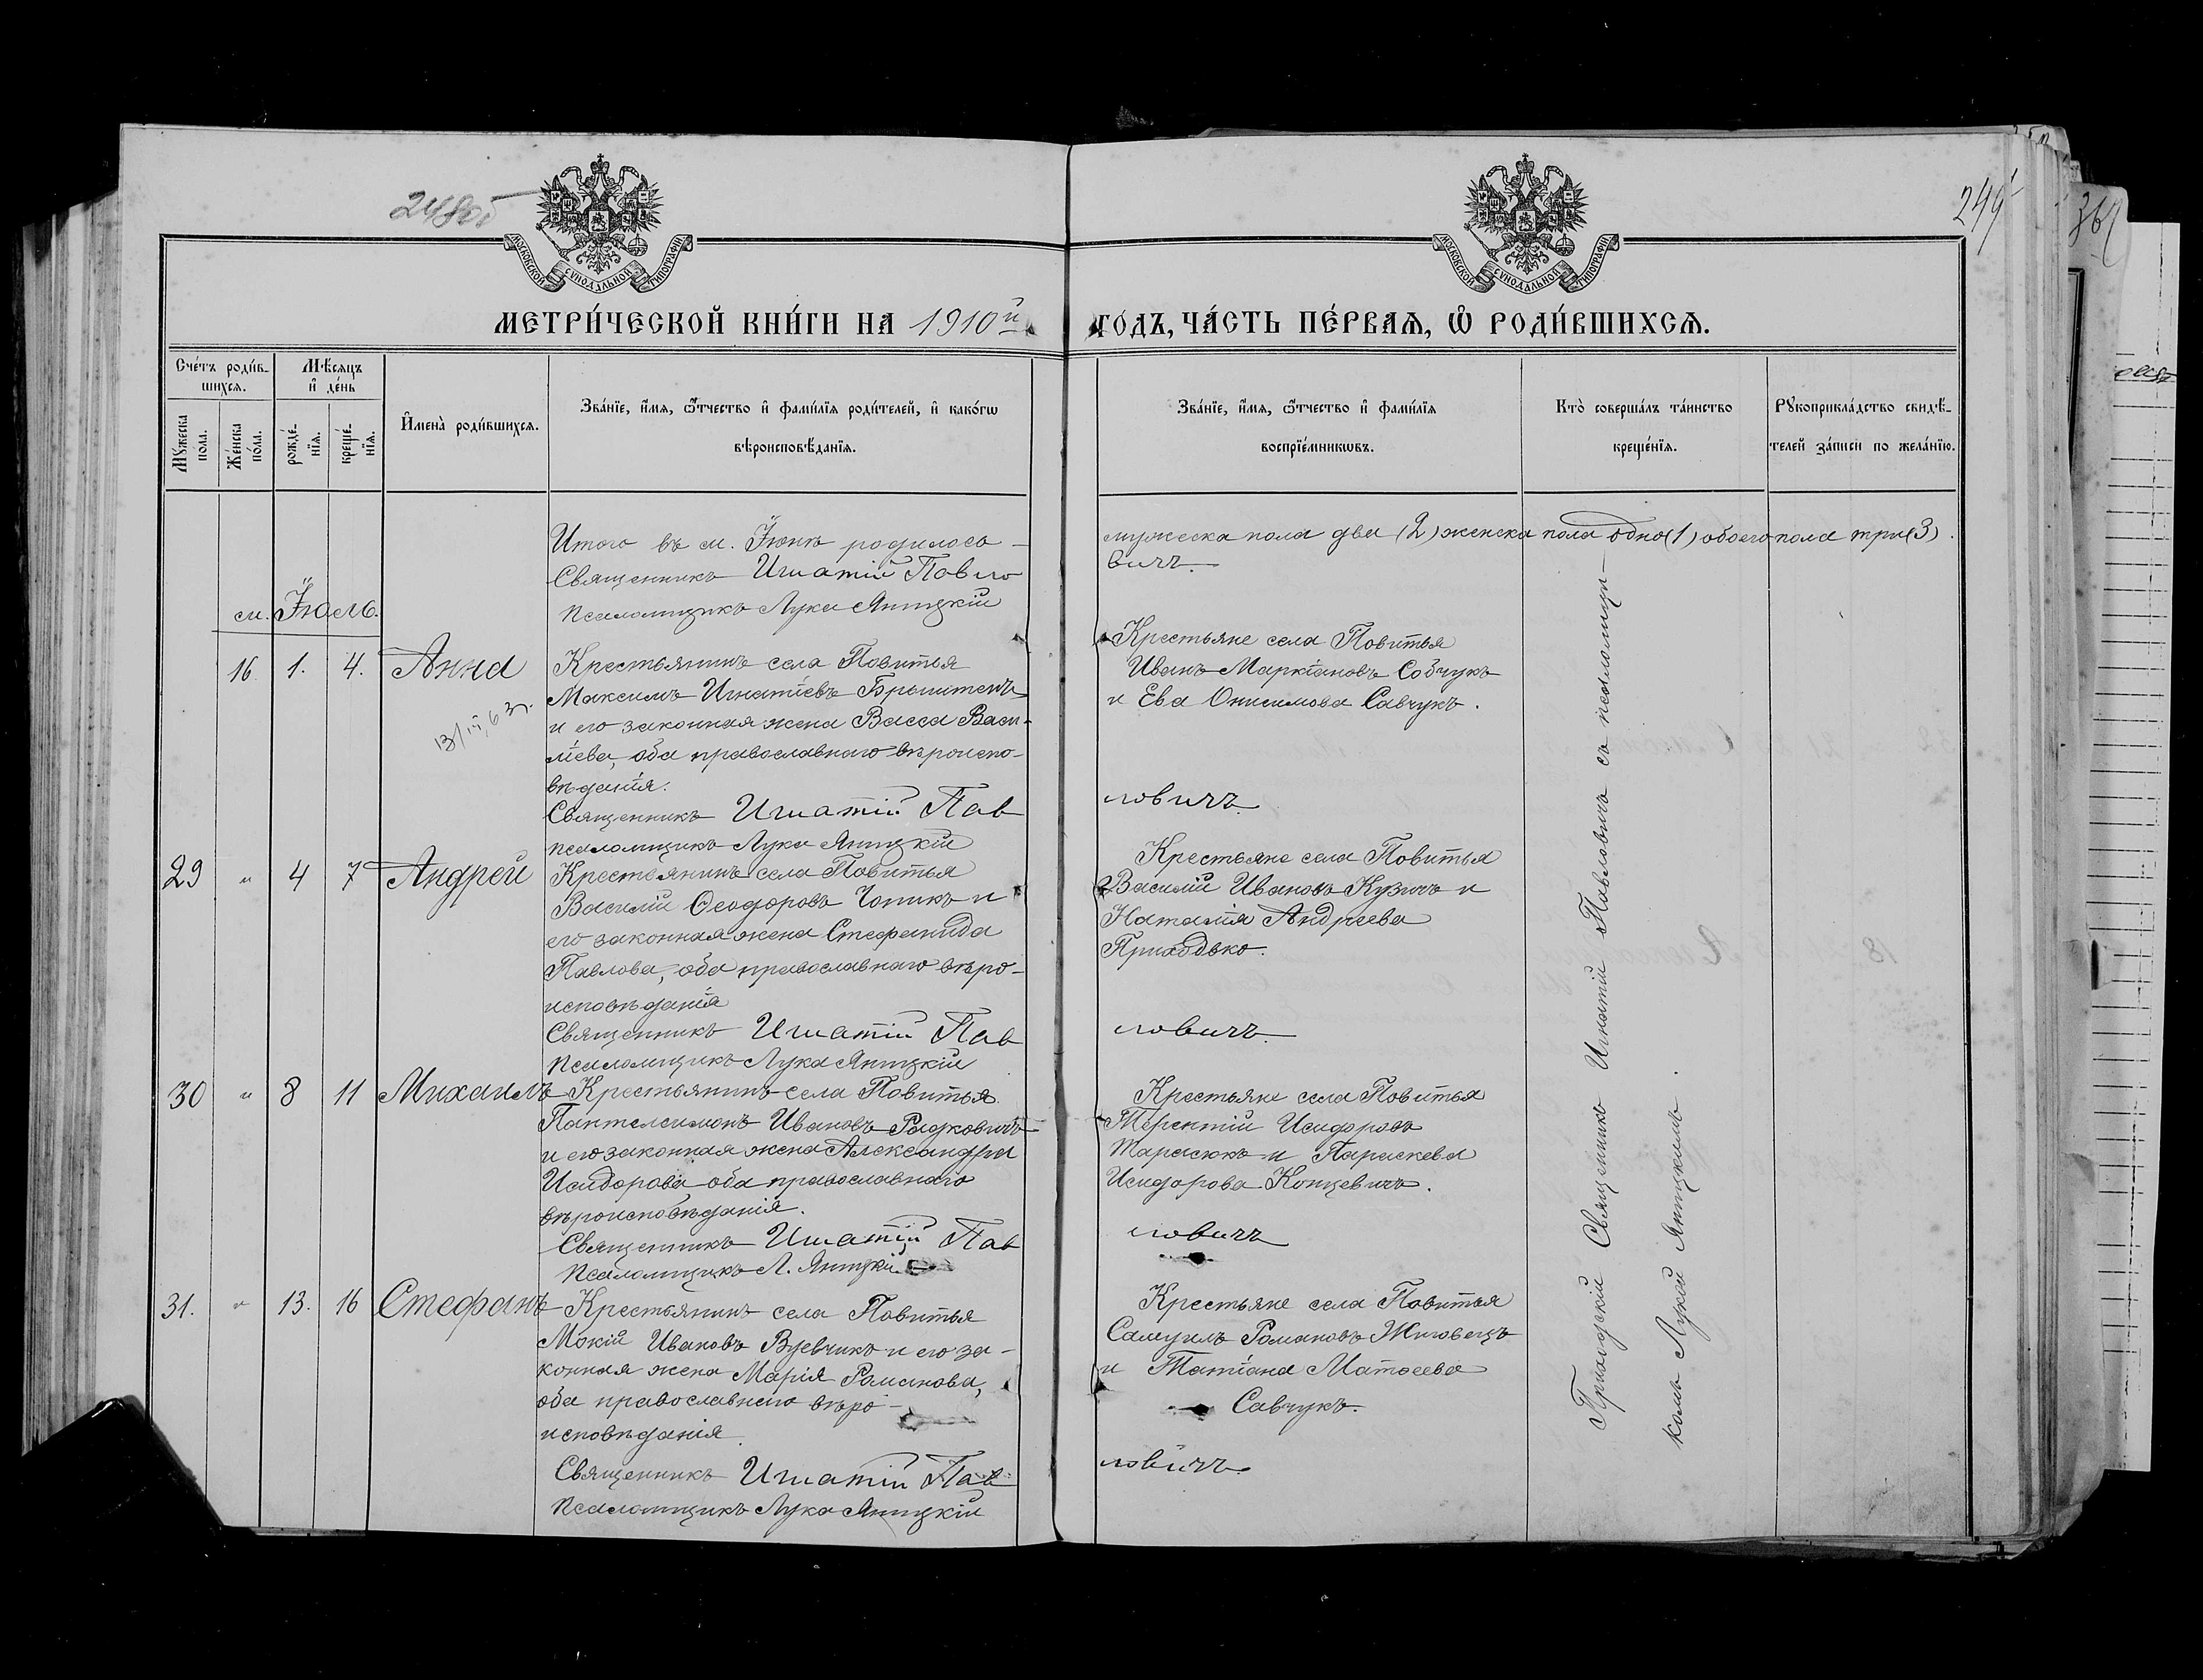 248об
249
МОСКОВСКОЙ СѴНОДАЛЬНОЙ ТИПОГРАФІИ
МОСКОВСКОЙ СѴНОДАЛЬНОЙ ТИПОГРАФІИ
МЕТРИ́ЧЕСКОЙ КНИ́ГИ НА 1910й
ГО́ДЪ, ЧА́СТЬ ПЕ́РВАѦ, Ѽ РОДИ́ВШИХСѦ.
Сче́тъ роди́в-
шихсѧ.
Мꙋжеска
пола.
Же́нска
по́ла.
Мѣ́сѧцъ
и҆ де́нь
рожде́-
нїѧ.
креще́-
нїѧ.
И҆мена̀ роди́вшихсѧ.
Зва́нїе, и҆́мѧ, ѻ҆́тчество и҆ фами́лїѧ роди́телей, и҆ како́гѡ
вѣроисповѣ́данїѧ.
Зва́нїе, и҆́мѧ, ѻ҆́тчество и҆ фами́лїѧ
воспрїе́мникѡвъ.
Кто̀ соверша́лъ та́инство
креще́нїѧ.
Рꙋкоприкла́дство свидѣ́-
телей за́писи по жела́нїю.
Итого въ м. Іюнѣ родилось
мужеска пола два (2) женска пола одно (1) обоего пола три (3).
Священникъ Игнатій Павло
вичъ.
Псаломщикъ Лука Яницкій
м. Іюль.
16. 1. 4. Анна
Крестьянинъ села Повитья
Максимъ Игнатіевъ Брыштенъ
и его законная жена Васса Васи-
ліева, оба православнаго вѣроиспо-
вѣданія.
Священникъ Игнатій Пав
Псаломщикъ Лука Яницкій
Крестьяне села Повитья
Иванъ Маркіановъ Собчукъ
и Ева Онисимова Савчукъ.
ловичъ
29 " 4 7 Андрей
Крестьянинъ села Повитья
Василій Ѳеодоровъ Чопикъ и
его законная жена Стефанида
Павлова, оба православнаго вѣро-
исповѣданія
Священникъ Игнатій Пав
Псаломщикъ Лука Яницкій
Крестьяне села Повитья
Василій Ивановъ Кузичъ и
Наталія Андреева
Приходько.
ловичъ.
30 " 8 11 Михаилъ
Крестьянинъ села Повитья
Пантелеимонъ Ивановъ Радковичъ
и его законная жена Александра
Исидорова оба православнаго
вѣроисповѣданія.
Священникъ Игнатій Пав
Псаломщикъ Л. Яницкій
Крестьяне села Повитья
Терентій Исидоровъ
Тарасюкъ и Параскева
Исидорова Концевичъ.
ловичъ
31. " 13. 16 Стефанъ
Крестьянинъ села Повитья
Мокій Ивановъ и его за-
конная жена Марія Романова,
оба православнаго вѣро-
исповѣданія.
Священникъ Игнатій Пав
Псаломщикъ Лука Яницкій
Крестьяне села Повитья
Самуилъ Романовъ Жиговецъ
и Татіана Матѳеева
Савчукъ.
ловичъ.
Приходскій Священникъ Игнатій Павловичъ съ псаломщи-
комъ Лукой Яницкимъ.